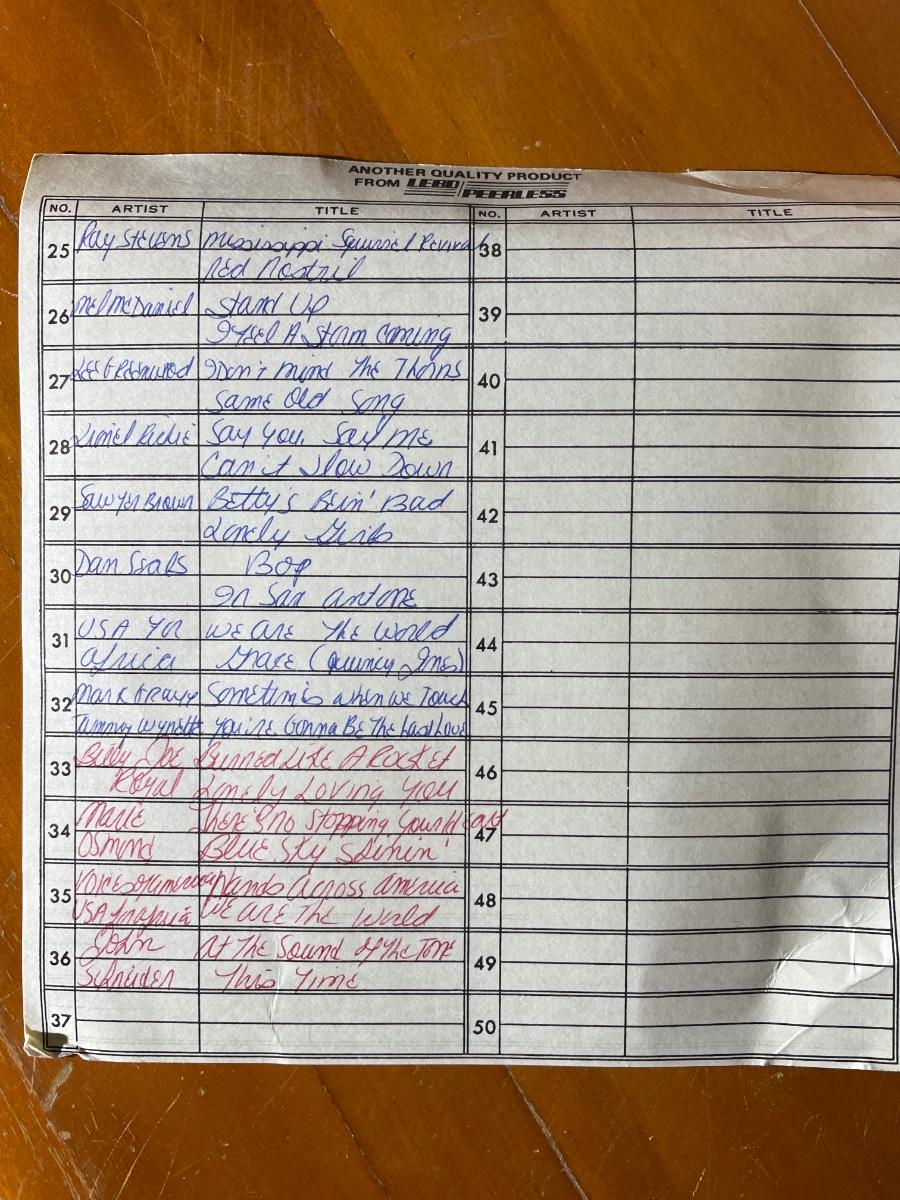 ANOTHER QUALITY PRODUCT
FROM LEBO/PEERLESS
NO. ARTIST TITLE NO. ARTIST TITLE
25 Ray Stevens Mississippi Squirrel Revival
Red Nostril
26 Mel McDaniel Stand Up
I Feel A Storm Coming
27 Lee Greenwood I Don't mind The Thorns
Same Old Song
28 Lionel Richie Say You, Say Me
Can't Slow Down
29 Sawyer Brown Betty's Bein' Bad
Lonely Girls
30 Dan Seals Bop
In San Antone
31 USA For We Are The World
Africa Grace (Quincy Jones)
32 Mark Gray & Sometimes when we Touch
Tammy Wynette You're Gonna Be The Last Love
33 Billy Joe Burned Like A Rocket
Royal Lonely Loving You
34 Marie There's no Stopping Your Heart
Osmond Blue Sky Shinin'
35 Voices of America Hands Across America
USA for Africa We Are The World
36 John At The Sound Of The Tone
Schneider This Time
37
38
39
40
41
42
43
44
45
46
47
48
49
50